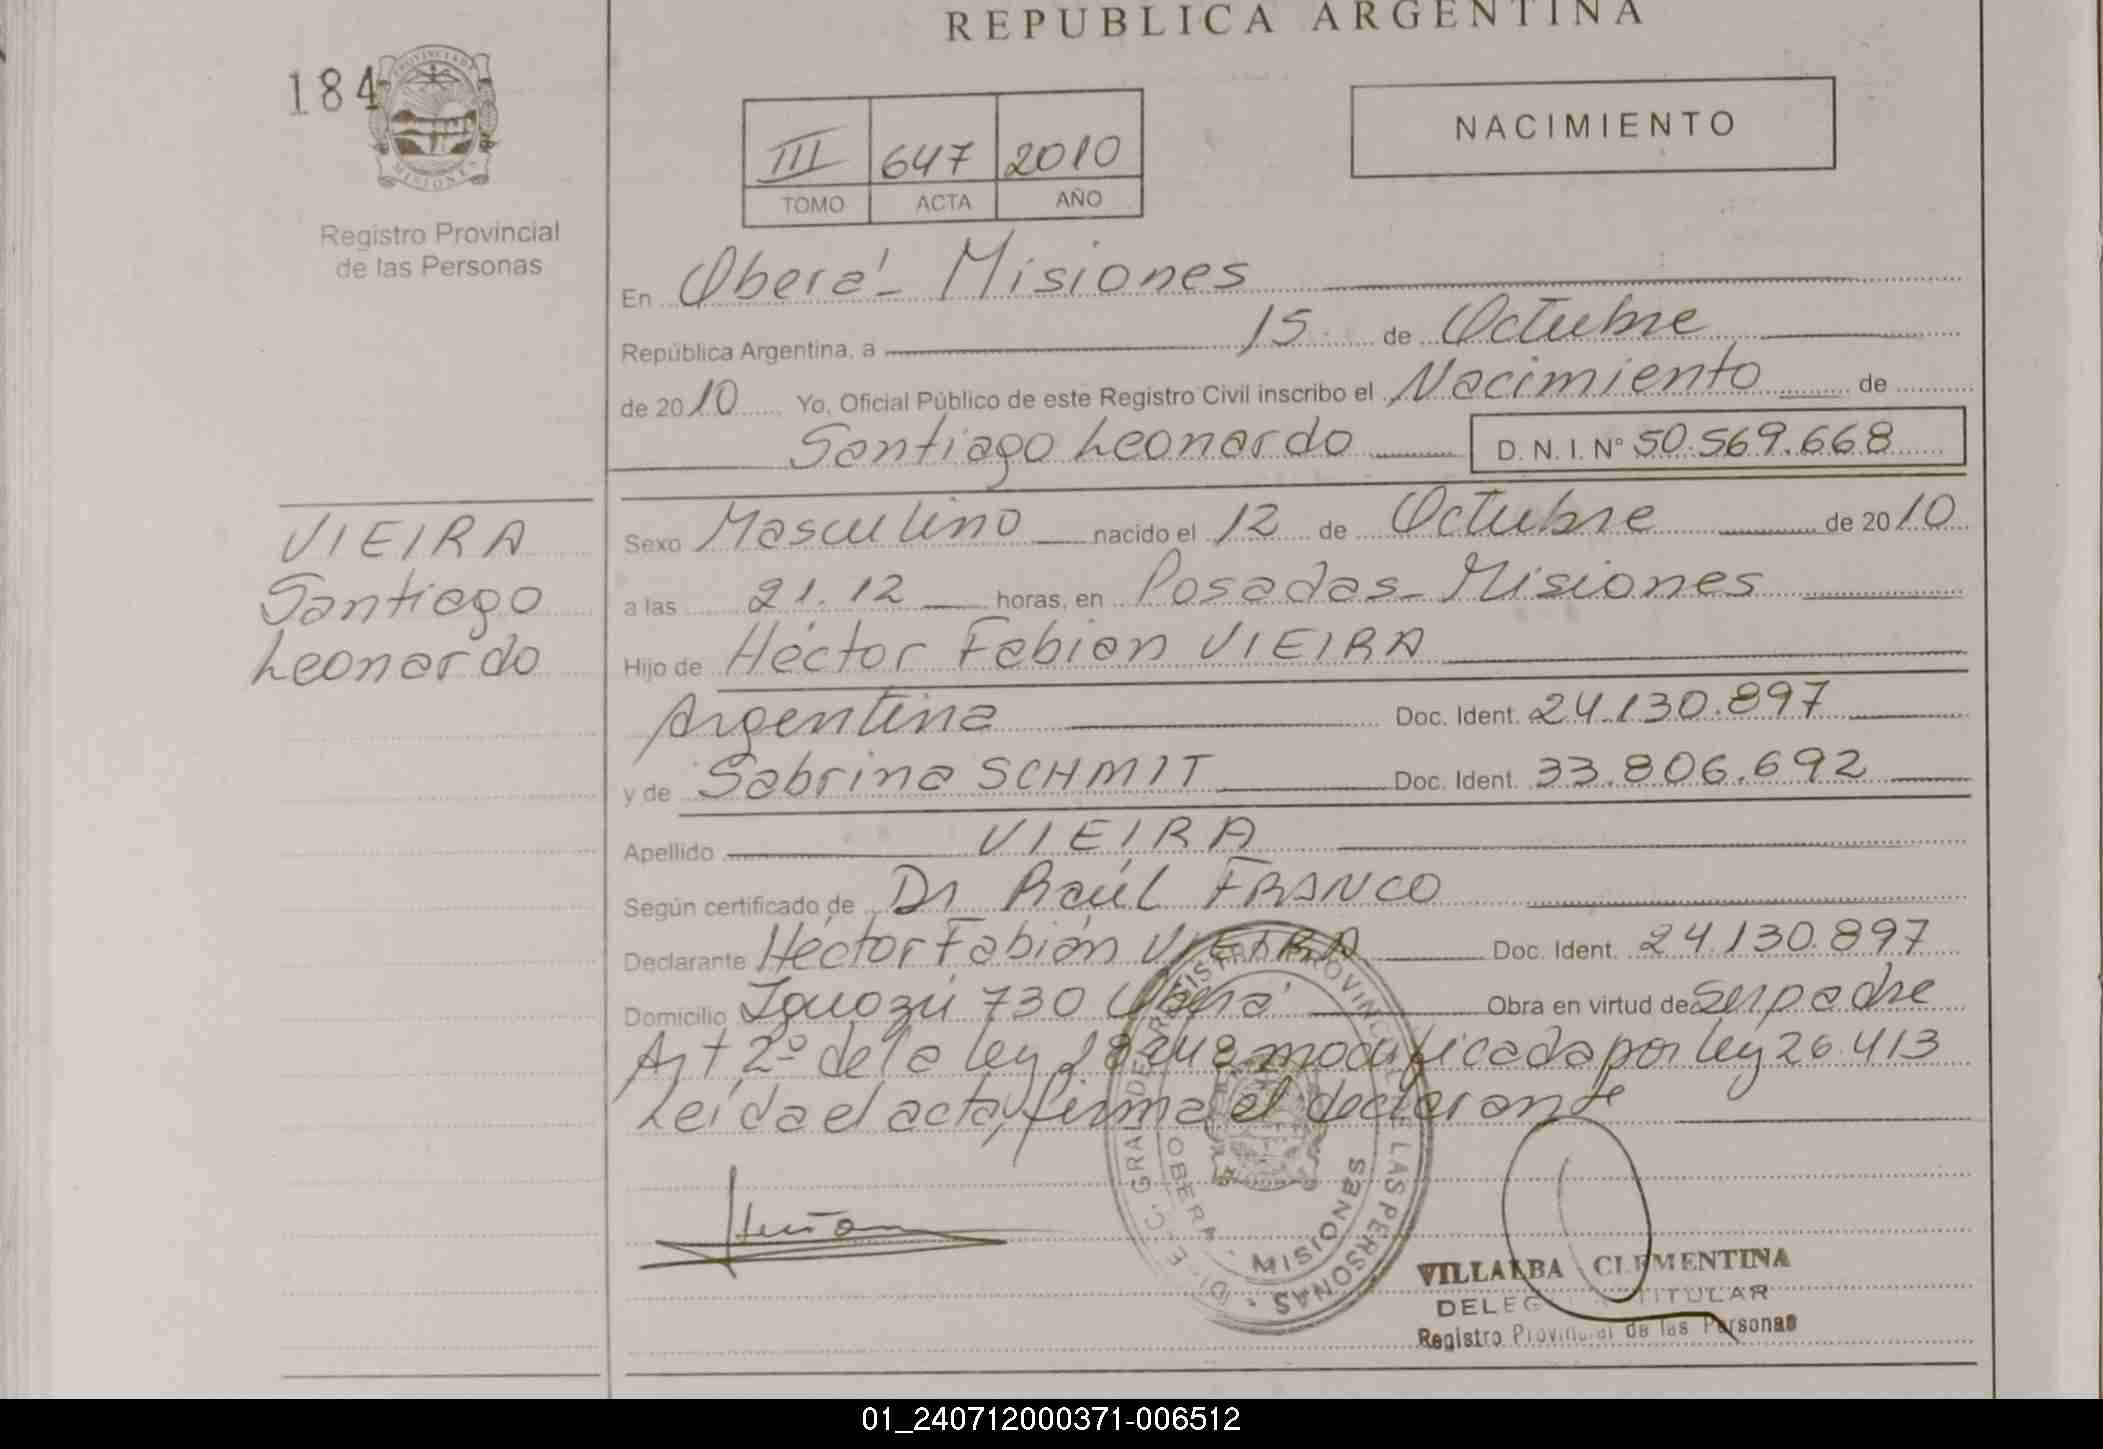 REPUBLICA ARGENTINA
184
PROVINCIA DE
MISIONES
Registro Provincial
de las Personas
III 647 2010
TOMO ACTA AÑO
NACIMIENTO
En Oberá - Misiones
República Argentina, a 15 de Octubre
de 2010 Yo, Oficial Público de este Registro Civil inscribo el Nacimiento de
Santiago Leonardo D. N. I. N° 50.569.668
VIEIRA
Santiago
Leonardo
Sexo Masculino nacido el 12 de Octubre de 2010
a las 21.12 horas, en Posadas - Misiones
Hijo de Héctor Fabian VIEIRA
Argentina Doc. Ident. 24.130.897
y de Sabrina SCHMIT Doc. Ident. 33.806.692
Apellido VIEIRA
Según certificado de Dr Raúl FRANCO
Declarante Héctor Fabián VIEIRA Doc. Ident. 24.130.897
Domicilio Iguazú 730 Oberá Obra en virtud de Ser padre
Art 2º de la ley modificada por ley 26.413
Leída el acta, firma el declarante
REGISTRO PROVINCIAL DE LAS PERSONAS
OBERA - MISIONES
VILLALBA CLEMENTINA
TITULAR
Registro Provincial de las Personas
01_240712000371-006512